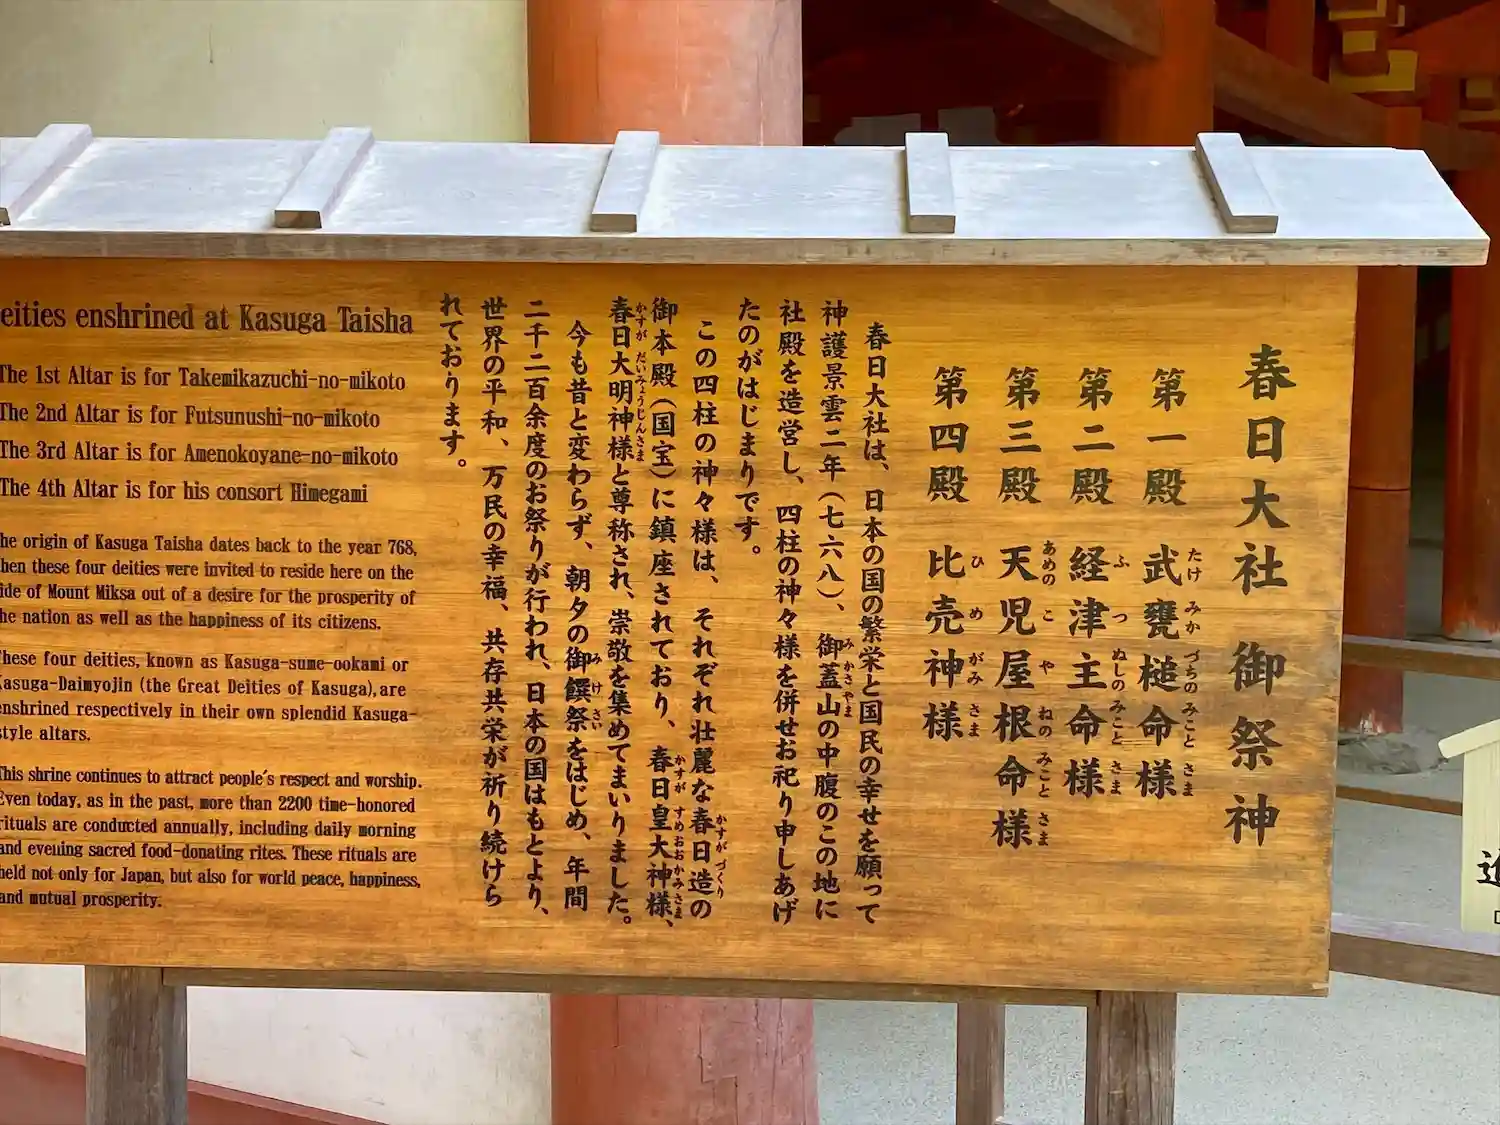 春日大社 御祭神
第一殿 武甕槌命様
たけ みか づちの みこと さま
第二殿 経津主命様
ふ つ ぬしの みこと さま
第三殿 天児屋根命様
あめの こ や ねの みこと さま
第四殿 比売神様
ひ め がみ さま
春日大社は、日本の国の繁栄と国民の幸せを願って
神護景雲二年（七六八）、御蓋山の中腹のこの地に
み かさ やま
社殿を造営し、四柱の神々様を併せお祀り申しあげ
たのがはじまりです。
この四柱の神々様は、それぞれ壮麗な春日造の
かすが づくり
御本殿（国宝）に鎮座されており、春日皇大神様、
かすが すめ おおかみ さま
春日大明神様と尊称され、崇敬を集めてまいりました。
かすが だいみょうじん さま
今も昔と変わらず、朝夕の御饌祭をはじめ、年間
み け さい
二千二百余度のお祭りが行われ、日本の国はもとより、
世界の平和、万民の幸福、共存共栄が祈り続けら
れております。
eities enshrined at Kasuga Taisha
The 1st Altar is for Takemikazuchi-no-mikoto
The 2nd Altar is for Futsunushi-no-mikoto
The 3rd Altar is for Amenokoyane-no-mikoto
The 4th Altar is for his consort Himegami
he origin of Kasuga Taisha dates back to the year 768,
hen these four deities were invited to reside here on the
ide of Mount Miksa out of a desire for the prosperity of
he nation as well as the happiness of its citizens.
hese four deities, known as Kasuga-sume-ookami or
Kasuga-Daimyojin (the Great Deities of Kasuga), are
enshrined respectively in their own splendid Kasuga-
style altars.
This shrine continues to attract people's respect and worship.
Even today, as in the past, more than 2200 time-honored
rituals are conducted annually, including daily morning
and evening sacred food-donating rites. These rituals are
held not only for Japan, but also for world peace, happiness,
and mutual prosperity.